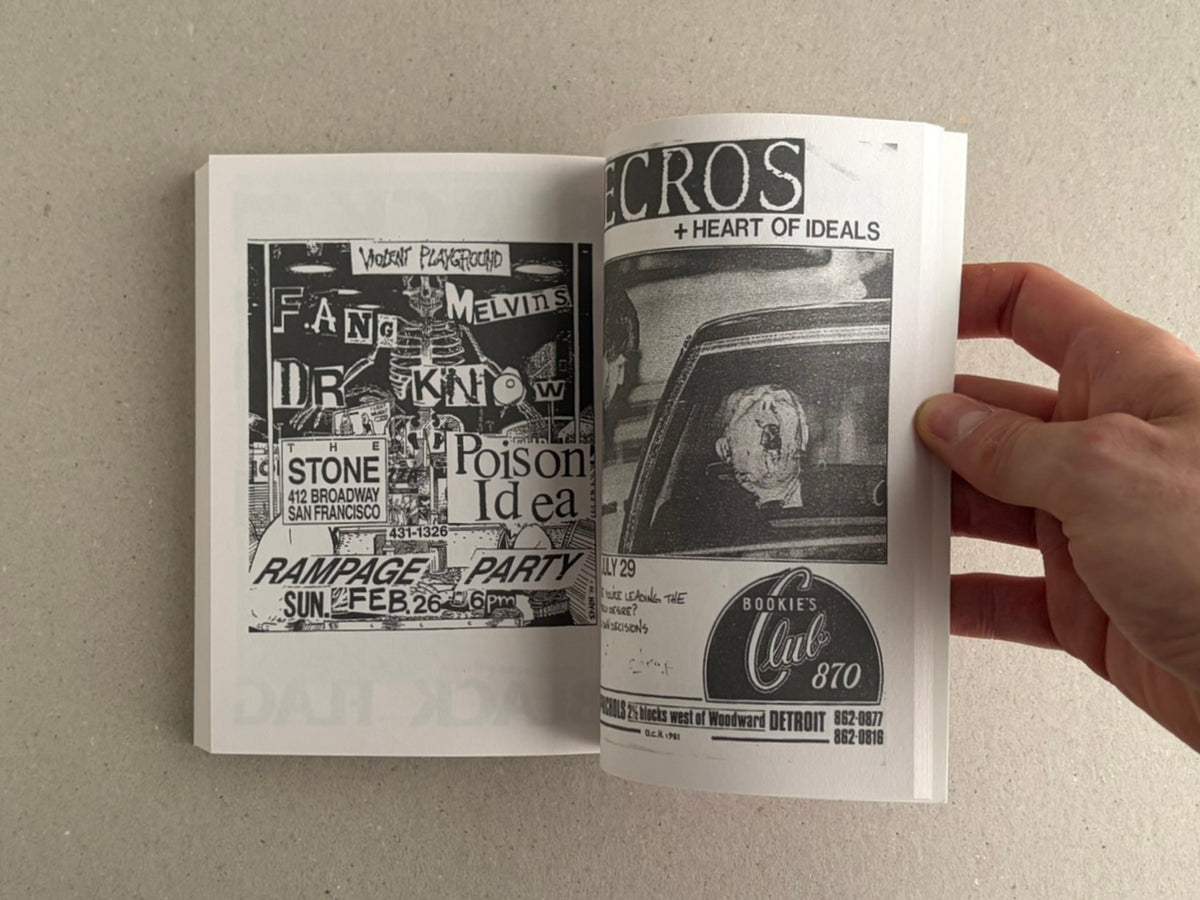 VIOLENT PLAYGROUND
FANG
MELVINS
DR KNOW
THE
STONE
412 BROADWAY
SAN FRANCISCO
431-1326
Poison
Idea
RAMPAGE PARTY
SUN. FEB. 26 6pm
BLACK FLAG
ECROS
+ HEART OF IDEALS
ULY 29
YOU'RE LEADING THE
DESIRE?
DECISIONS
BOOKIE'S
Club
870
2½ blocks west of Woodward DETROIT 862-0877
862-0816
O.C.R. 1981